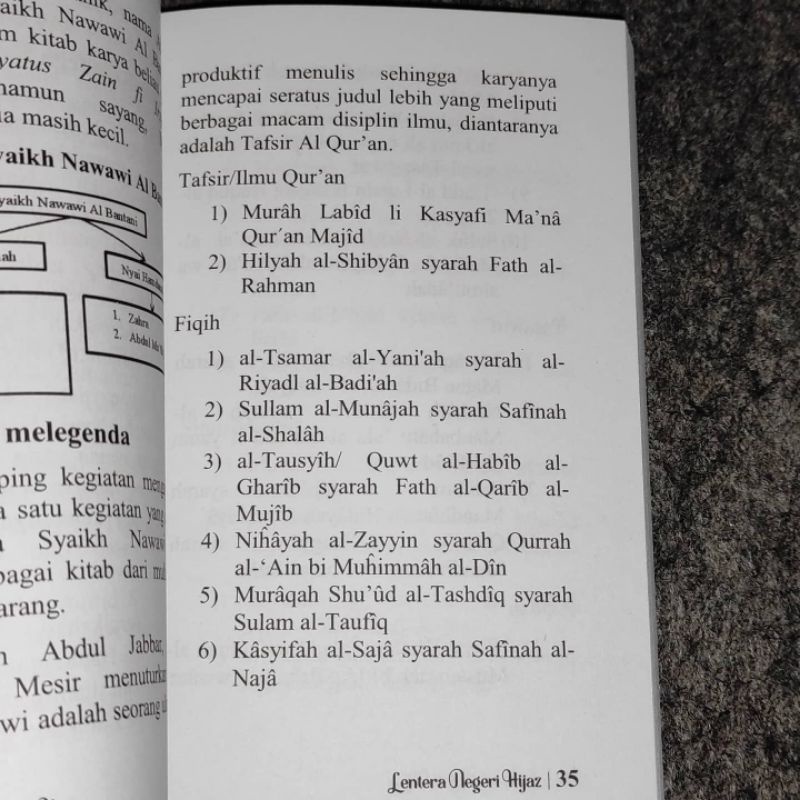 nama
aikh Nawawi Al
m kitab karya
yatus Zain fi
namun sayang,
a masih kecil.
yaikh Nawawi Al
yaikh Nawawi Al Bantani
ah
Nyai
1. Zahra
2. Abdul
melegenda
ping kegiatan
a satu kegiatan yang
Syaikh Nawawi
bagai kitab dari
arang.
Abdul Jabbar,
Mesir menuturkan
wi adalah seorang
produktif menulis sehingga karyanya
mencapai seratus judul lebih yang meliputi
berbagai macam disiplin ilmu, diantaranya
adalah Tafsir Al Qur’an.
Tafsir/Ilmu Qur’an
1) Murâh Labîd li Kasyafi Ma’nâ
Qur´an Majîd
2) Hilyah al-Shibyân syarah Fath al-
Rahman
Fiqih
1) al-Tsamar al-Yani'ah syarah al-
Riyadl al-Badi'ah
2) Sullam al-Munâjah syarah Safînah
al-Shalâh
3) al-Tausyîh/ Quwt al-Habîb al-
Gharîb syarah Fath al-Qarîb al-
Mujîb
4) Niĥâyah al-Zayyin syarah Qurrah
al-‘Ain bi Muĥimmâh al-Dîn
5) Murâqah Shu’ûd al-Tashdîq syarah
Sulam al-Taufîq
6) Kâsyifah al-Sajâ syarah Safînah al-
Najâ
Lentera Negeri Hijaz | 35